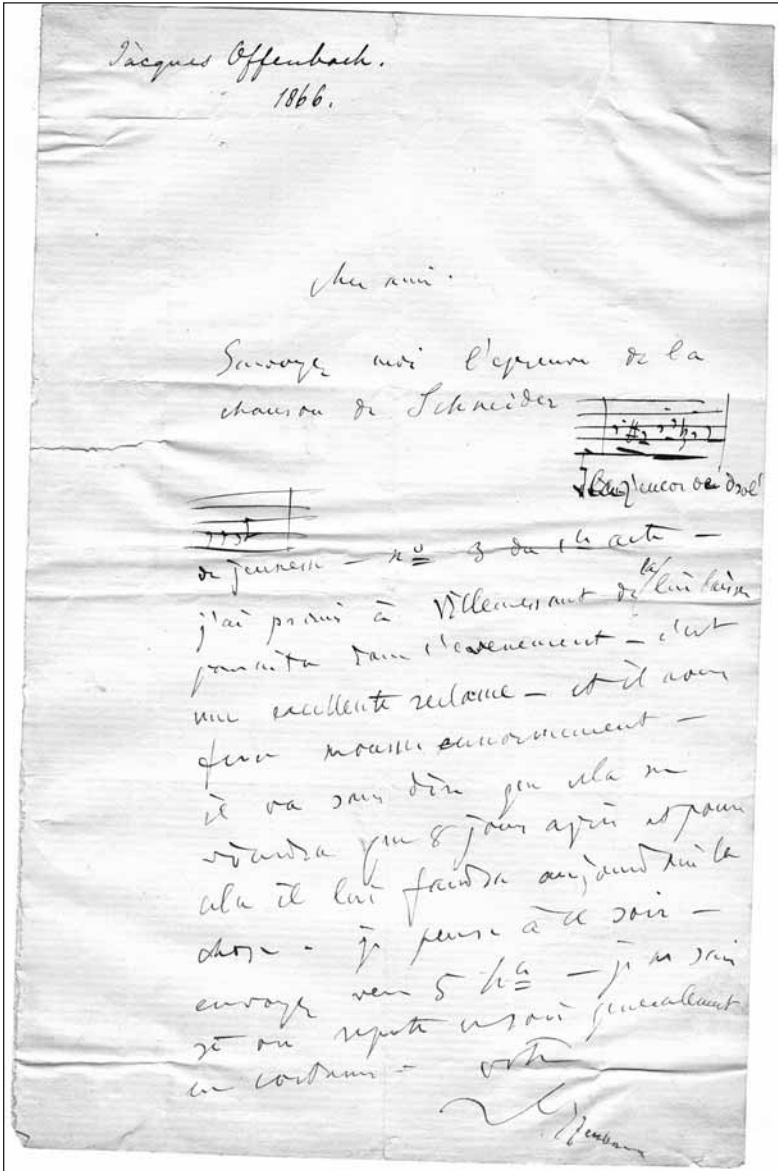 Jacques Offenbach.
1866.
cher ami.
Envoyez moi l'epreuve de la
chanson de Schneider
de jeunesse – nº 3 du 1er acte –
j'ai promis à Villemessant de la lui laisser
paraitre dans l'evenement – c'est
une excellente reclame – et il nous
fera mousser enormement –
il va sans dire que cela ne
viendra que 8 jours après et pour
cela il lui faudra aujourd'hui la
chose – je pense à ce soir –
envoyez vers 5 hes – je ne sais
si on repete ce soir generalement
en costumes – votre
Offenbach